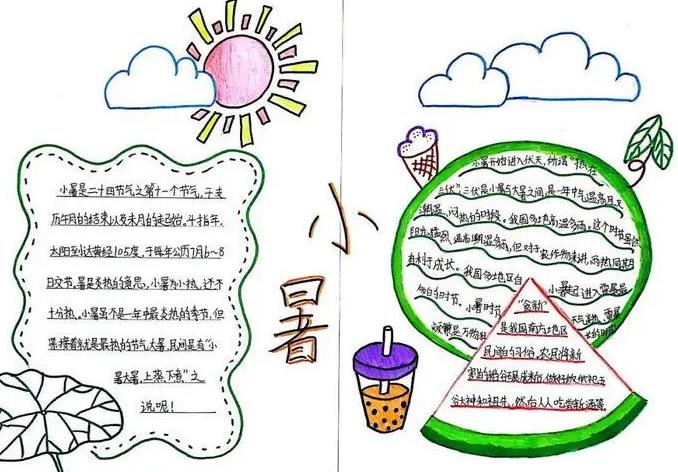 小暑
小暑是二十四节气之第十一个节气,干支
历午月的结束以及未月的起始。斗指辛,
太阳到达黄经105度,于每年公历7月6~8
日交节。暑是炎热的意思,小暑为小热,还不
十分热。小暑虽不是一年中最炎热的季节,但
紧接着就是最热的节气大暑,民间有"小
暑大暑,上蒸下煮"之
说呢!
小暑开始进入伏天,所谓"热在
三伏",三伏是小暑与大暑之间,是一年中气温高又
潮湿、闷热的时段。我国多地高温多雨。这个时
日光猛烈、温高潮湿多雨,但对于农作物来讲,雨热同期
有利于成长。我国多地区自
小暑起进入雷暴最
多的时节。小暑时节
"食新"
是我国南方地区
民间的习俗,农民将新
割的稻谷碾成米后,做好饭供祀五
谷大神和祖先,然后人人吃尝新酒等。